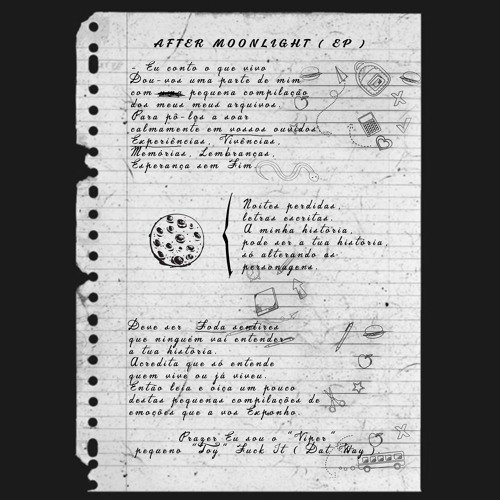 AFTER MOONLIGHT ( EP )
- Eu conto o que vivo
Dou-vos uma parte de mim
com pequena compilação
dos meus meus arquivos.
Para pô-los a soar
calmamente em vossos ouvidos.
Experiências, Vivências,
Memórias, Lembranças,
Esperança sem Fim
Noites perdidas,
letras escritas.
A minha história,
pode ser a tua história,
só alterando as
personagens.
Deve ser Foda sentires
que ninguém vai entender
a tua história.
Acredita que só entende
quem vive ou já viveu.
Então leia e oiça um pouco
destas pequenas compilações de
emoções que a vos Exponho.
Prazer Eu sou o "Viper"
pequeno "Toy" Fuck It ( Dat Way )